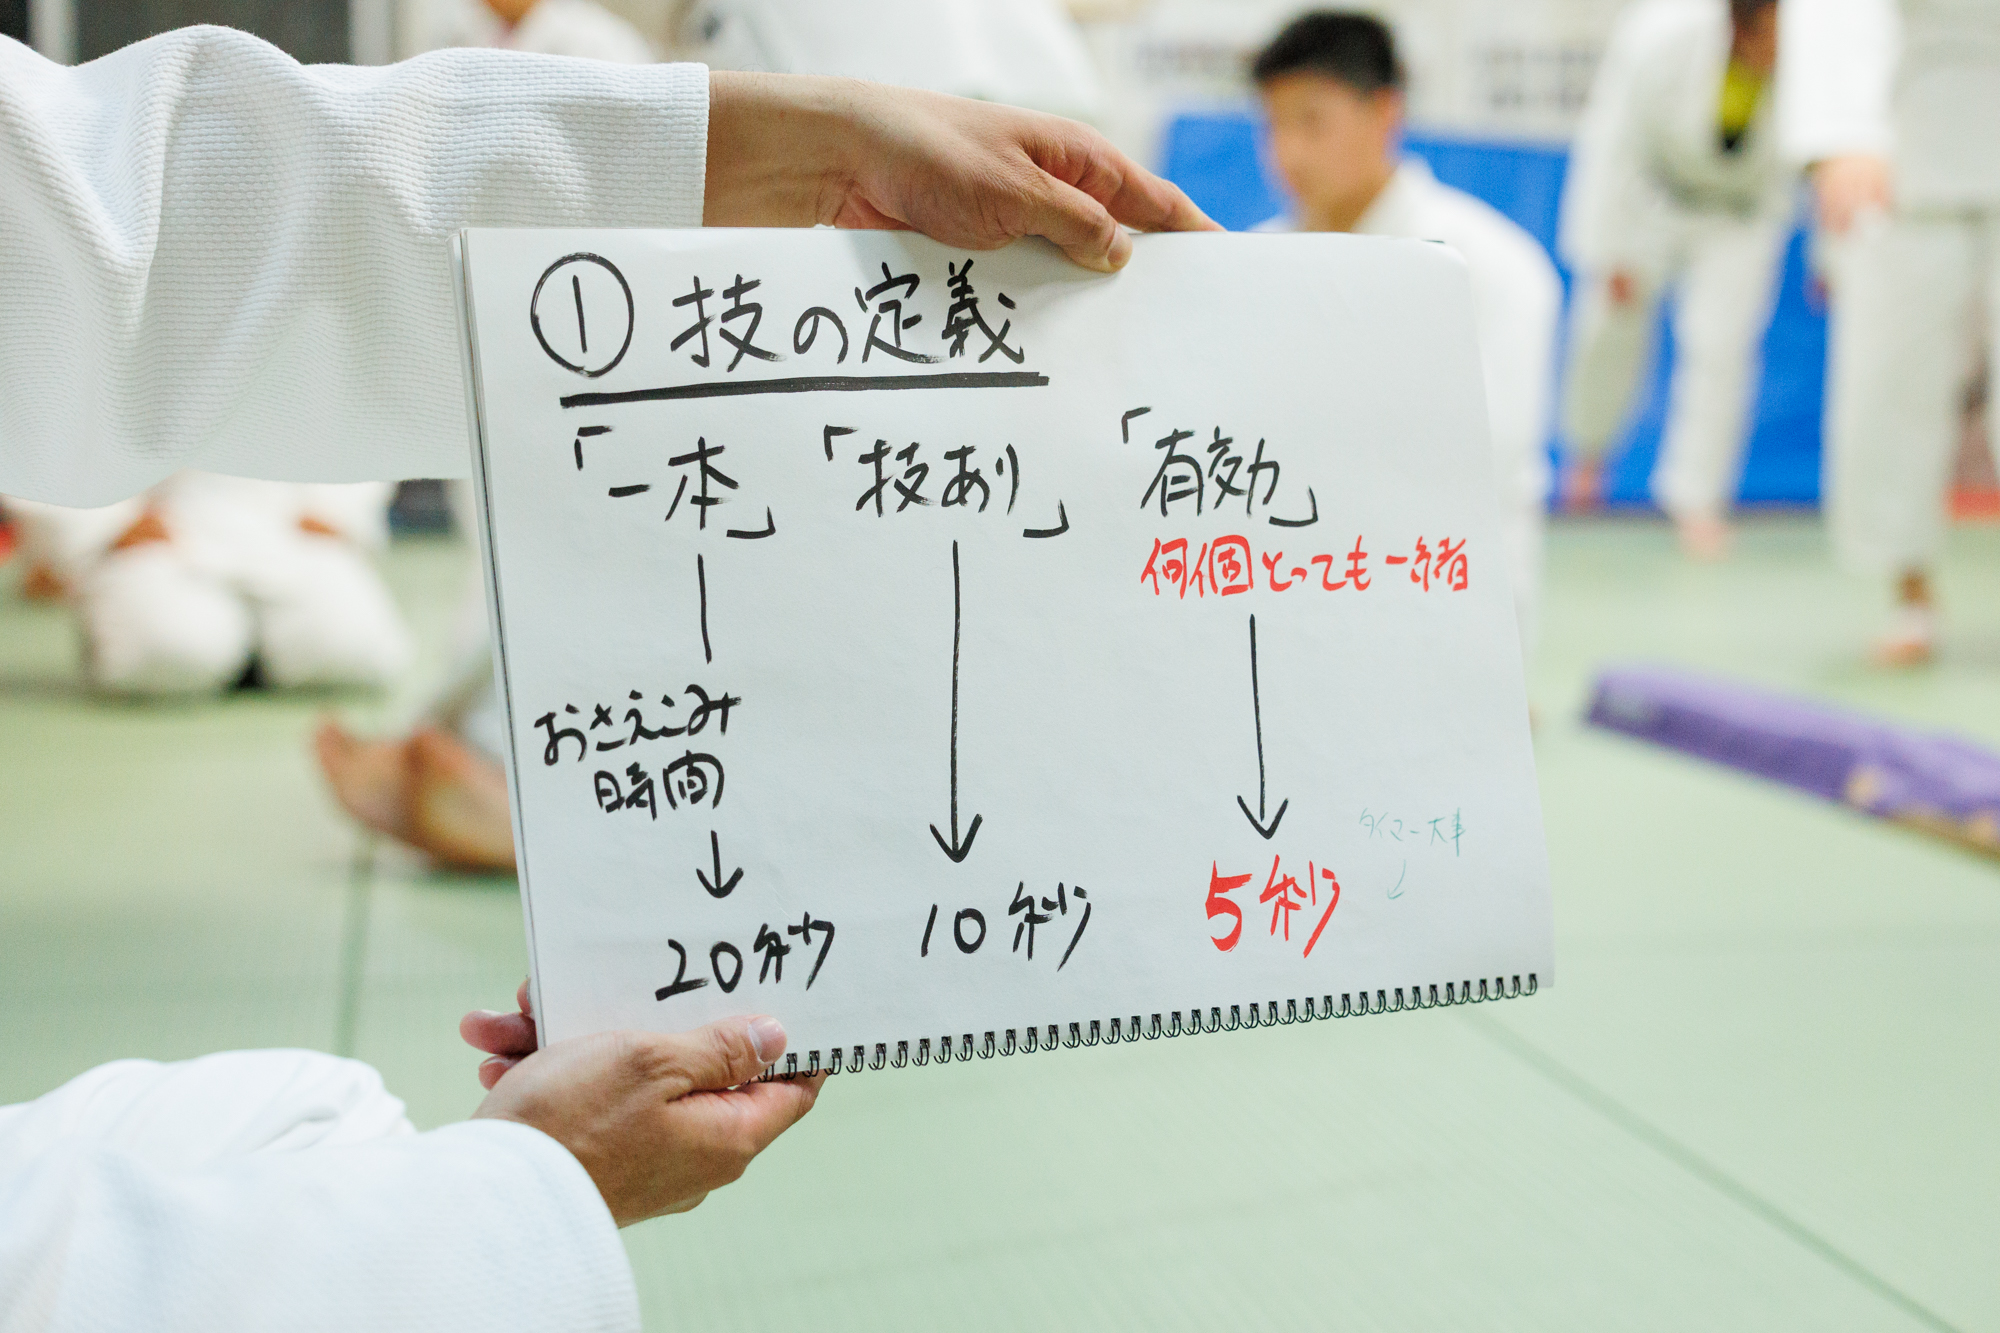 ① 技の定義
「一本」 「技あり」 「有効」
何個とっても一緒
おさえこみ
時間
タイマー大事
20秒 10秒 5秒